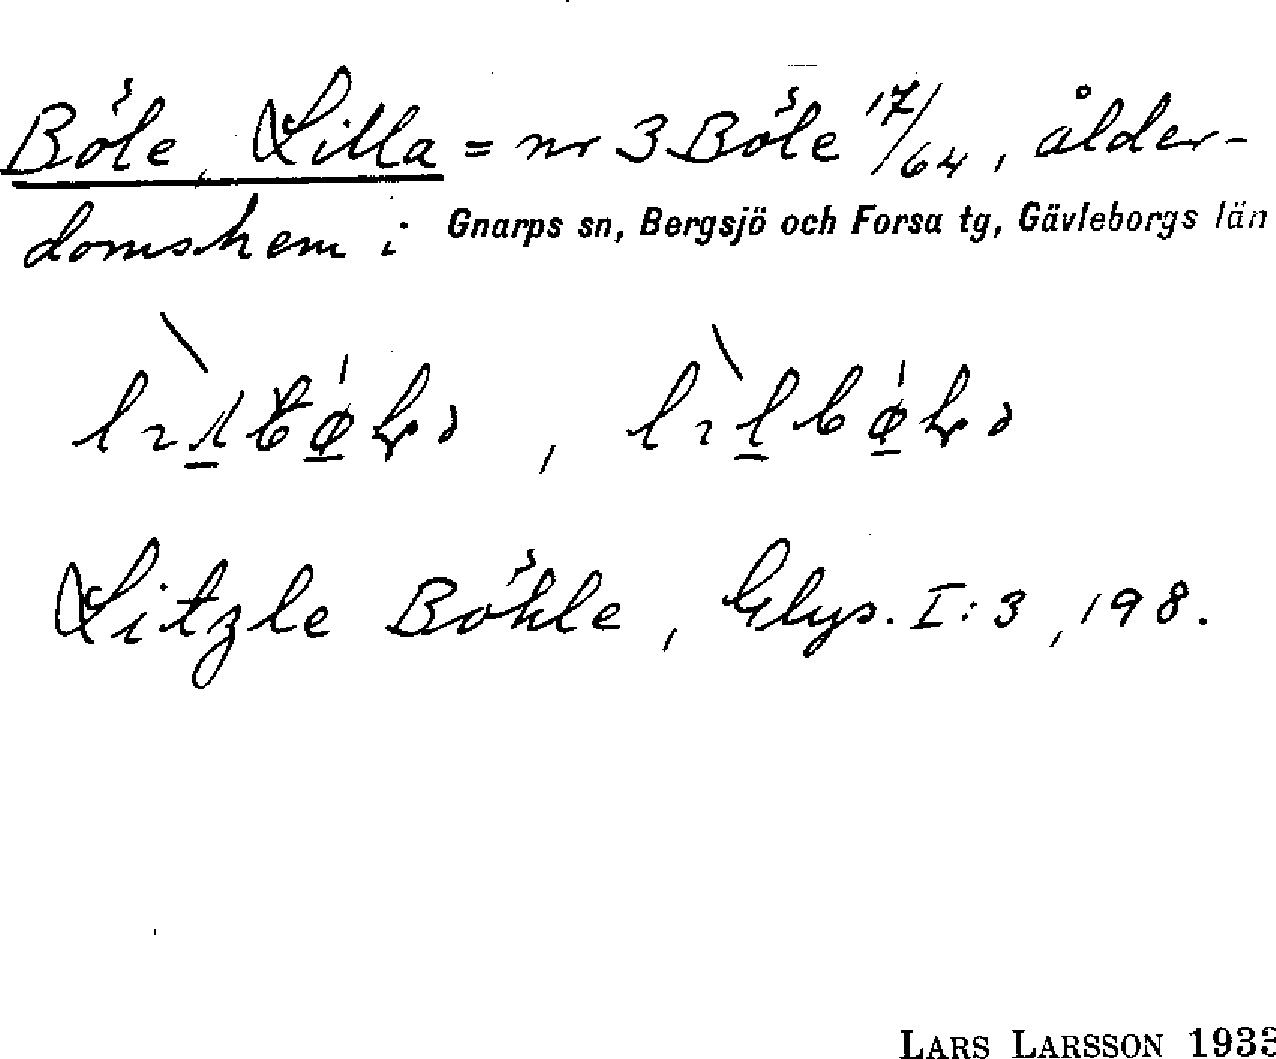 Böle, Lilla = nr 3 Böle 17/64, ålder-
domshem i Gnarps sn, Bergsjö och Forsa tg, Gävleborgs län
Litzle Böhle, Glys. I:3, 198.
LARS LARSSON 1933